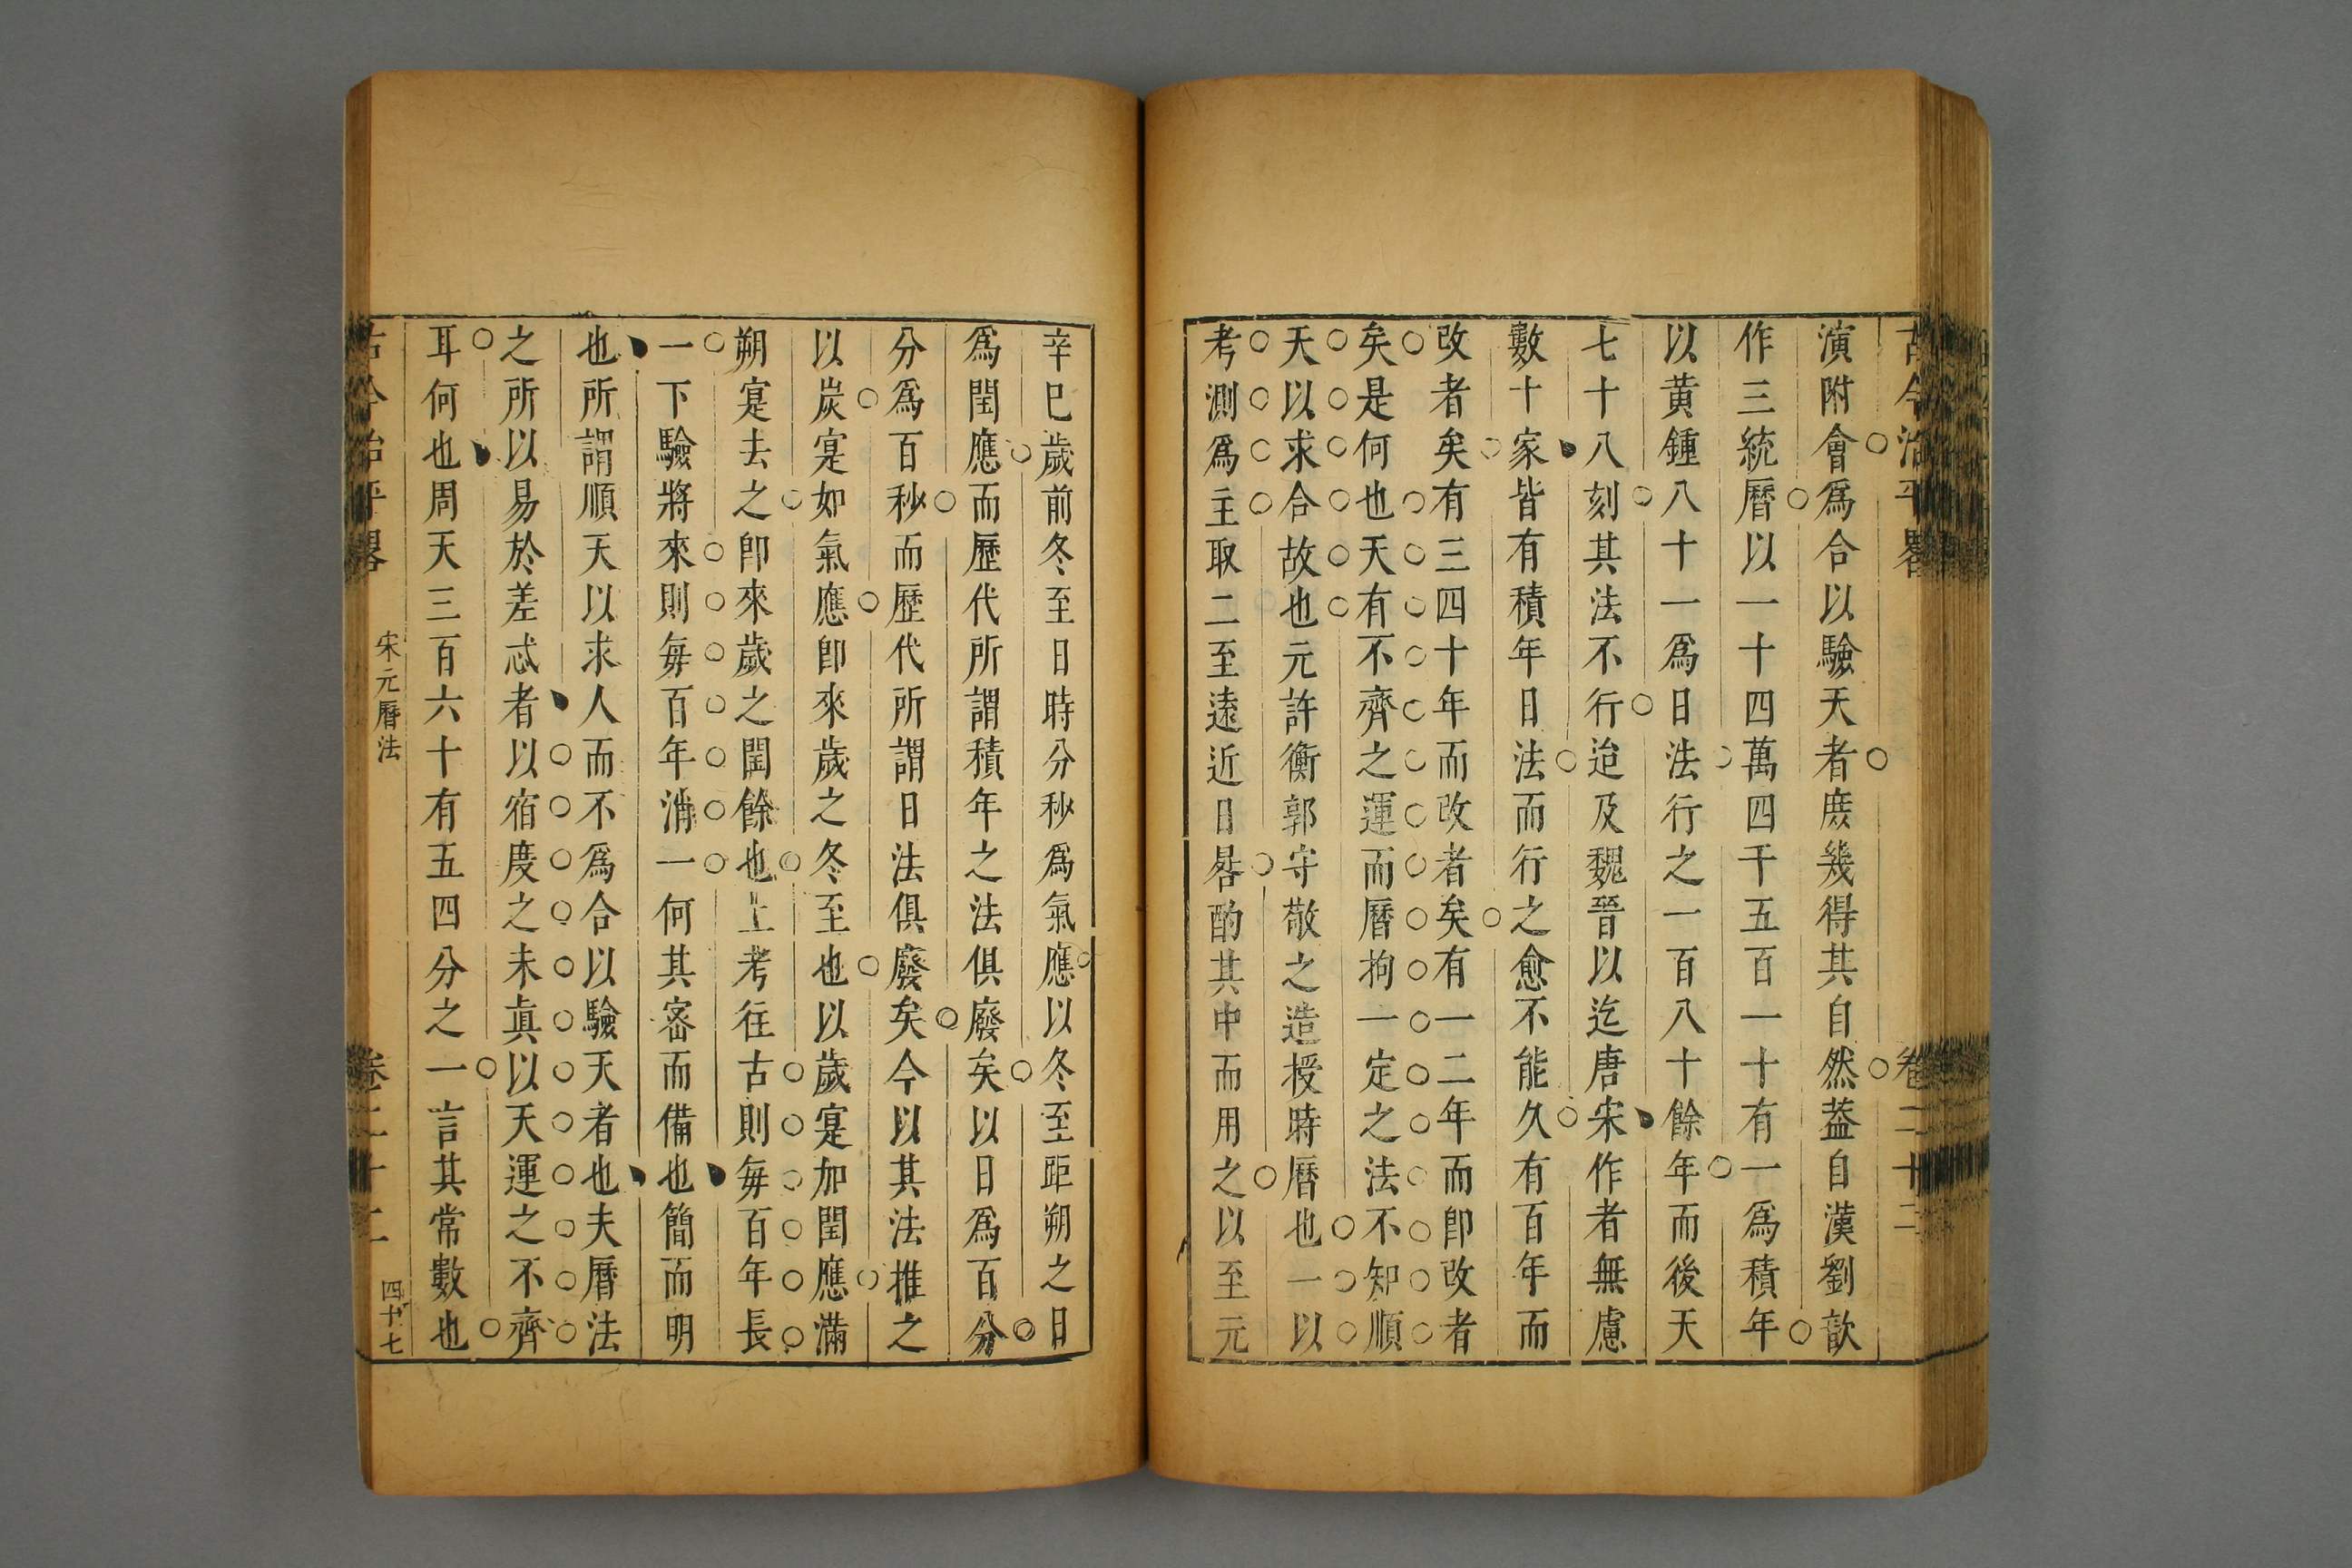 古今治平畧 卷二十二
演附會爲合以驗天者庻幾得其自然葢自漢劉歆
作三統曆以一十四萬四千五百一十有一爲積年
以黄鍾八十一爲日法行之一百八十餘年而後天
七十八刻其法不行迨及魏晉以迄唐宋作者無慮
數十家皆有積年日法而行之愈不能久有百年而
改者矣有三四十年而改者矣有一二年而卽改者
矣是何也天有不齊之運而曆拘一定之法不知順
天以求合故也元許衡郭守敬之造授時曆也一以
考測爲主取二至遠近日晷酌其中而用之以至元
辛巳歲前冬至日時分秒爲氣應以冬至距朔之日
爲閏應而歷代所謂積年之法俱廢矣以日爲百分
分爲百秒而歷代所謂日法俱廢矣今以其法推之
以歲寔如氣應卽來歲之冬至也以歲寔加閏應滿
朔寔去之卽來歲之閏餘也上考往古則每百年長
一下驗將來則每百年消一何其密而備也簡而明
也所謂順天以求人而不爲合以驗天者也夫曆法
之所以易於差忒者以宿度之未眞以天運之不齊
耳何也周天三百六十有五四分之一言其常數也
古今治平畧 宋元曆法 卷二十二 四十七